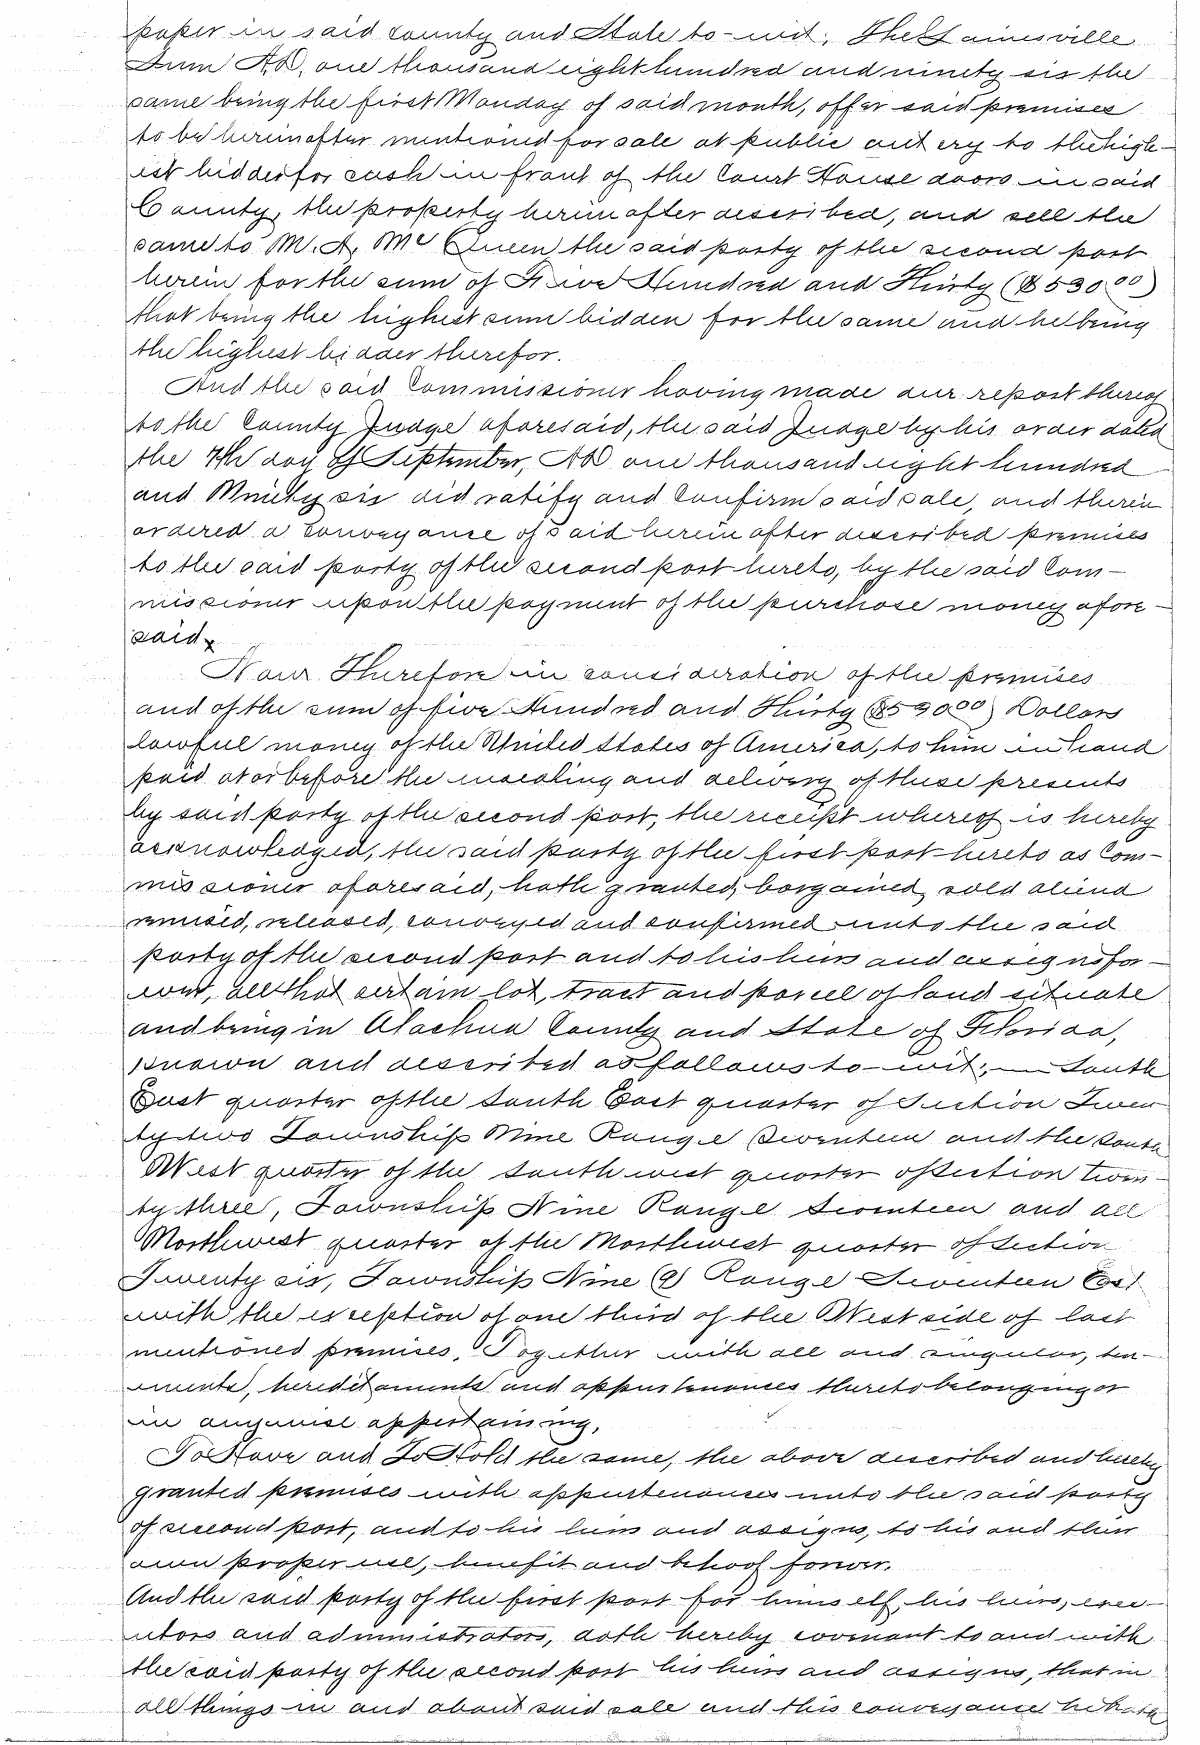 paper in said county and State to-wit, The Gainesville
Sun AD, one thousand eight hundred and ninety six the
same being the first Monday of said month, offer said premises
to be hereinafter mentioned for sale at public out cry to the high-
est bidder for cash in front of the Court House doors in said
County, the property herein after described, and sell the
same to M. A. Mc Queen the said party of the second part
herein for the sum of Five Hundred and Thirty ($530.00)
that being the highest sum bidden for the same and he being
the highest bidder therefor.
And the said Commissioner having made due report thereof
to the County Judge aforesaid, the said Judge by his order dated
the 7th day of September, AD one thousand eight hundred
and Ninety six did ratify and Confirm said sale, and therein
ordered a conveyance of said herein after described premises
to the said party of the second part hereto, by the said Com-
missioner upon the payment of the purchase money afore-
said.
Now Therefore in consideration of the premises
and of the sum of five Hundred and Thirty ($530.00) Dollars
lawful money of the United States of America, to him in hand
paid at or before the ensealing and delivery of these presents
by said party of the second part, the receipt whereof is hereby
acknowledged, the said party of the first part hereto as Com-
missioner aforesaid, hath granted, bargained, sold aliend
remised, released, conveyed and confirmed unto the said
party of the second part and to his heirs and assigns for-
ever, all that certain lot, tract and parcel of land situate
and being in Alachua County and State of Florida,
known and described as follows to-wit; South
East quarter of the South East quarter of Section Twen
ty two Township Nine Range Seventeen and the South
West quarter of the South west quarter of Section twen-
ty three, Township Nine Range Seventeen and all
Northwest quarter of the Northwest quarter of Section
Twenty six, Township Nine (9) Range Seventeen East
with the exception of one third of the West side of last
mentioned premises, Together with all and singular, ten-
ements, hereditaments and appurtenances thereto belonging or
in anywise appertaining,
To Have and To Hold the same, the above described and hereby
granted premises with appurtenances unto the said party
of second part, and to his heirs and assigns, to his and their
own proper use, benefit and behoof forever.
And the said party of the first part for himself, his heirs, exec-
utors and administrators, doth hereby covenant to and with
the said party of the second part his heirs and assigns, that in
all things in and about said sale and this conveyance he hath